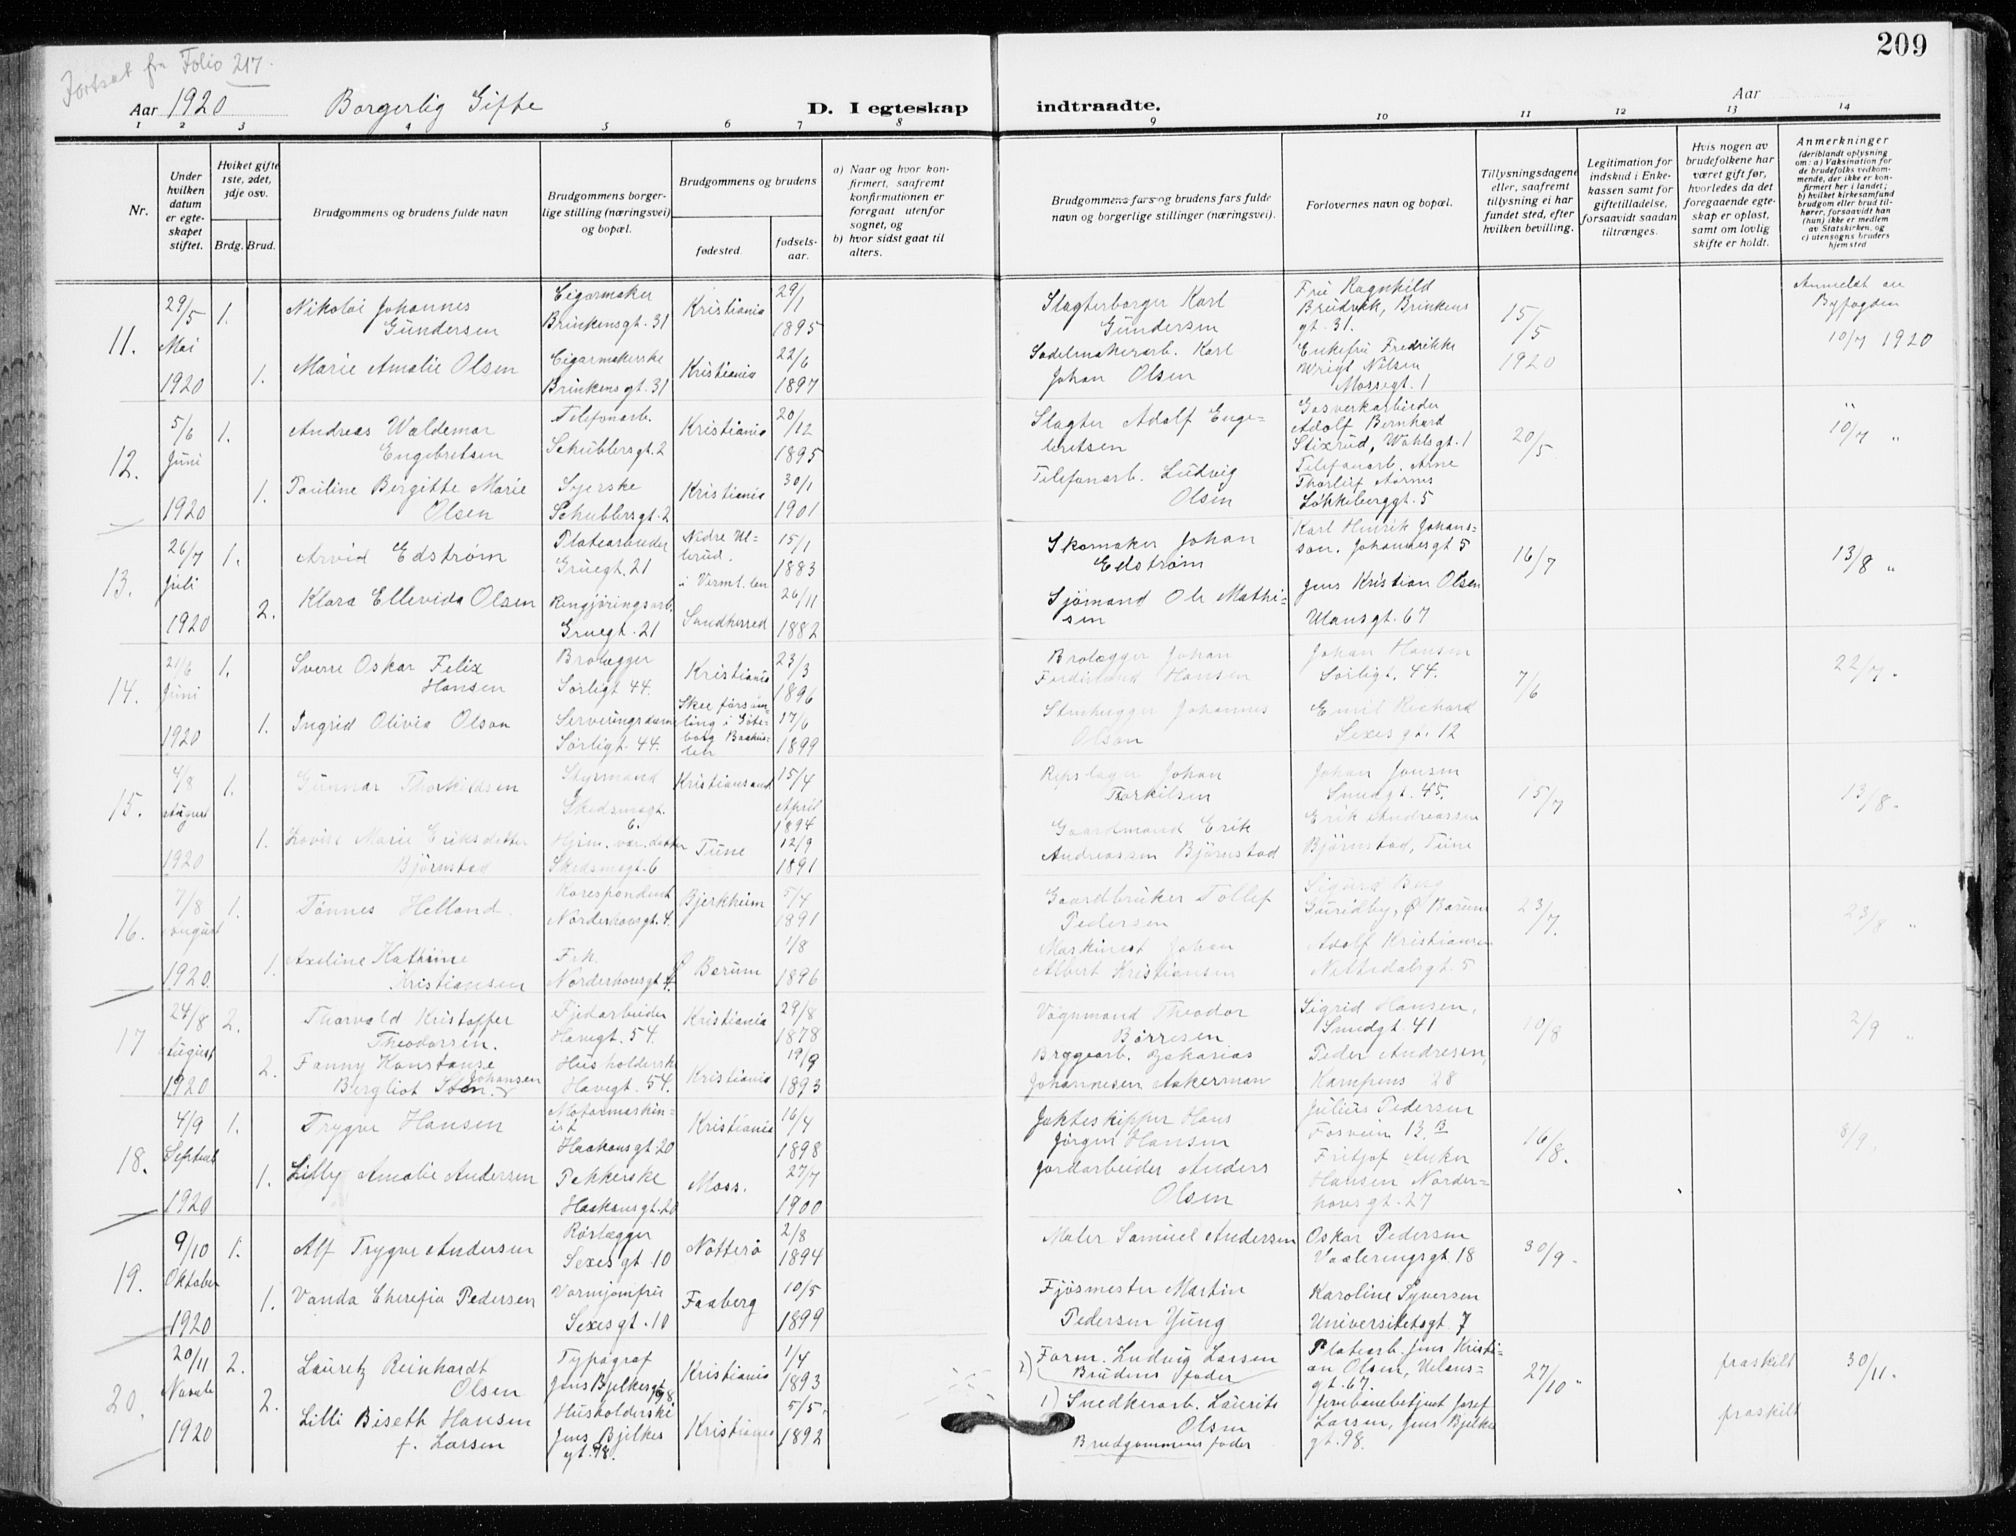 209
Fortsat fra Folio 217.
Aar 1920 Borgerlig Gifte D. I egteskap indtraadte. Aar
1 2 3 4 5 6 7 8 9 10 11 12 13 14
Nr.
Under hvilken datum er egteskapet stiftet.
Hvilket gifte 1ste, 2det, 3dje osv.
Brdg. Brud.
Brudgommens og brudens fulde navn
Brudgommens borgerlige stilling (næringsvei) og bopæl.
Brudgommens og brudens
fødested. fødselsaar.
a) Naar og hvor konfirmert, saafremt konfirmationen er foregaat utenfor sognet, og
b) hvor sidst gaat til alters.
Brudgommens fars og brudens fars fulde navn og borgerlige stillinger (næringsvei).
Forlovernes navn og bopæl.
Tillysningsdagene eller, saafremt tillysning ei har fundet sted, efter hvilken bevilling.
Legitimation for indskud i Enkekassen samt for giftetilladelse, forsaavidt saadan tiltrænges.
Hvis nogen av brudefolkene har været gift før, hvorledes da det foregaaende egteskap er opløst, samt om lovlig skifte er holdt.
Anmerkninger
(deriblandt oplysning om: a) Vaksination for de brudefolks vedkommende, der ikke er konfirmert her i landet; b) hvilket kirkesamfund brudgom eller brud tilhører, forsaavidt han (hun) ikke er medlem av Statskirken, og c) utensogns bruders hjemsted
11. 29/5 Mai 1920
1. Nikolai Johannes Gundersen
Cigarmaker Brinkensgt. 31
Kristiania 29/1 1895
Slagterborger Karl Gundersen
Fru Ragnhild Brudvik, Brinkens gt. 31.
15/5 1920
Anmeldt av Byfogden 10/7 1920
1. Marie Amalie Olsen
Cigarmakerske Brinkensgt. 31
Kristiania 22/6 1897
Sadelmakerarb. Karl Johan Olsen
Enkefru Fredrikke Wrigt Nilsen Mossegt. 1
12. 5/6 Juni 1920
1. Andreas Waldemar Engebretsen
Telefonarb. Schüblersgt. 2
Kristiania 20/12 1895
Slagter Adolf Engebretsen
Gasverkarbeider Adolf Bernhard Stixrud, Wahlsgt. 1
20/5
" 10/7 "
1. Pauline Bergitte Marie Olsen
Syerske Schüblersgt. 2
Kristiania 30/1 1901
Telefonarb. Ludvig Olsen
Telefonarb. Arne Thorleif Aarnes Løkkeberggt. 5
13. 26/7 Juli 1920
1. Arvid Edstrøm
Platearbeider Gruegt. 21
Nedre Ullerud. i Vermt. len 15/1 1883
Skomaker Johan Edstrøm
Karl Henrik Johansson. Johannesgt 5
16/7
13/8 "
2. Klara Ellevida Olsen
Rengjøringsarb. Gruegt. 21
Sandherred 26/11 1882
Sjømand Ole Mathisen
Jens Kristian Olsen Ulansgt. 67
14. 21/6 Juni 1920
1. Sverre Oskar Felix Hansen
Brolægger Sørligt 44.
Kristiania 23/3 1896
Brolægger Johan Ferdinand Hansen
Johan Hansen Sørligt. 44.
7/6
22/7 "
1. Ingrid Olivia Olson
Serveringsdame Sørligt. 44.
Skee församling i Göteborg Baahuslen 17/6 1899
Stenhugger Johannes Olson
Emil Richard Sexes gt. 12
15. 4/8 August 1920
1. Gunnar Thorkildsen
Styrmand Skedsmogt. 6.
Kristiansand 15/4 April 1894
Repslager Johan Torkilsen
Johan Jonsen Smedgt. 45.
15/7
13/8 "
1. Lovise Marie Eriksdatter Bjørnstad
Hjem. vær. datter Skedsmogt. 6
Tune 12/9 1891
Gaardmand Erik Andreassen Bjørnstad
Erik Andreassen Bjørnstad, Tune
16. 7/8 August 1920
1. Tønnes Helland.
Korespondent Nordenhovsgt. 4.
Bjerkheim 5/4 1891
Gaardbruker Tollef Pedersen
Sigurd Berg Guridby, Ø Bærum
23/7.
23/8 "
1. Axeline Kathrine Kristiansen
Frk. Nordenhovsgt 4.
Ø Bærum 1/8 1896
Maskinest Johan Albert Kristiansen
Adolf Kristiansen Nittedalsgt. 5
17 24/8 August 1920
2. Thorvald Kristoffer Theodorsen.
Fjedarbeider Havegt. 54.
Kristiania 29/8 1878
Vognmand Theodor Børresen
Sigrid Hansen, Smedgt. 41
10/8
2/9 "
2. Fanny Konstanse Bergliot Johansen
Husholderske Havegt. 54.
Kristiania 19/9 1893
Bryggearb. Zakarias Johannesen Aakerman
Peder Andresen, Kampens 28
18. 4/9 Septemb 1920
1. Trygve Hansen
Motormaskinist Haakonsgt. 20
Kristiania 16/4 1898
Jakteskipper Hans Jørgen Hansen
Julius Pedersen Fosvein 13 B
16/8.
8/9.
1. Lilly Amalie Andersen
Pekkerske Haakonsgt. 20
Moss. 27/7 1900
Jordarbeider Anders Olsen
Fritjof Anker Hansen Nordenhovsgt. 27
19. 9/10 Oktober 1920
1. Alf Trygve Andersen
Rørlægger Sexesgt 10
Nøtterø 2/8 1894
Maler Samuel Andersen
Oskar Pedersen Vaaleringsgt 18
30/9.
1. Vanda Cherefia Pedersen
Varmjomfru Sexesgt. 10
Faaberg 10/5 1899
Fjøsmester Martin Pedersen Yung
Karoline Syversen Universitetsgt 7
20. 20/11 Novbr 1920
2. Lauretz Reinhardt Olsen
Typograf Jens Bjelkesgt 98
Kristiania 1/4 1893
2) Form. Ludvig Larsen
Brudens fader
Platearb. Jens Kristian Olsen, Ulansgt. 67.
27/10 "
fraskilt
30/11.
2. Lilli Biseth Hansen f. Larsen
Husholderske Jens Bjelkes gt. 98.
Kristiania 5/5. 1892
1) Snedkerarb. Laurits Olsen
Brudgommens fader
Jernbanebetjent Josef Larsen, Jens Bjelkes gt. 98.
fraskilt